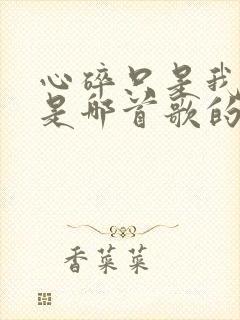 心碎只是我
是那首歌的
香菜菜